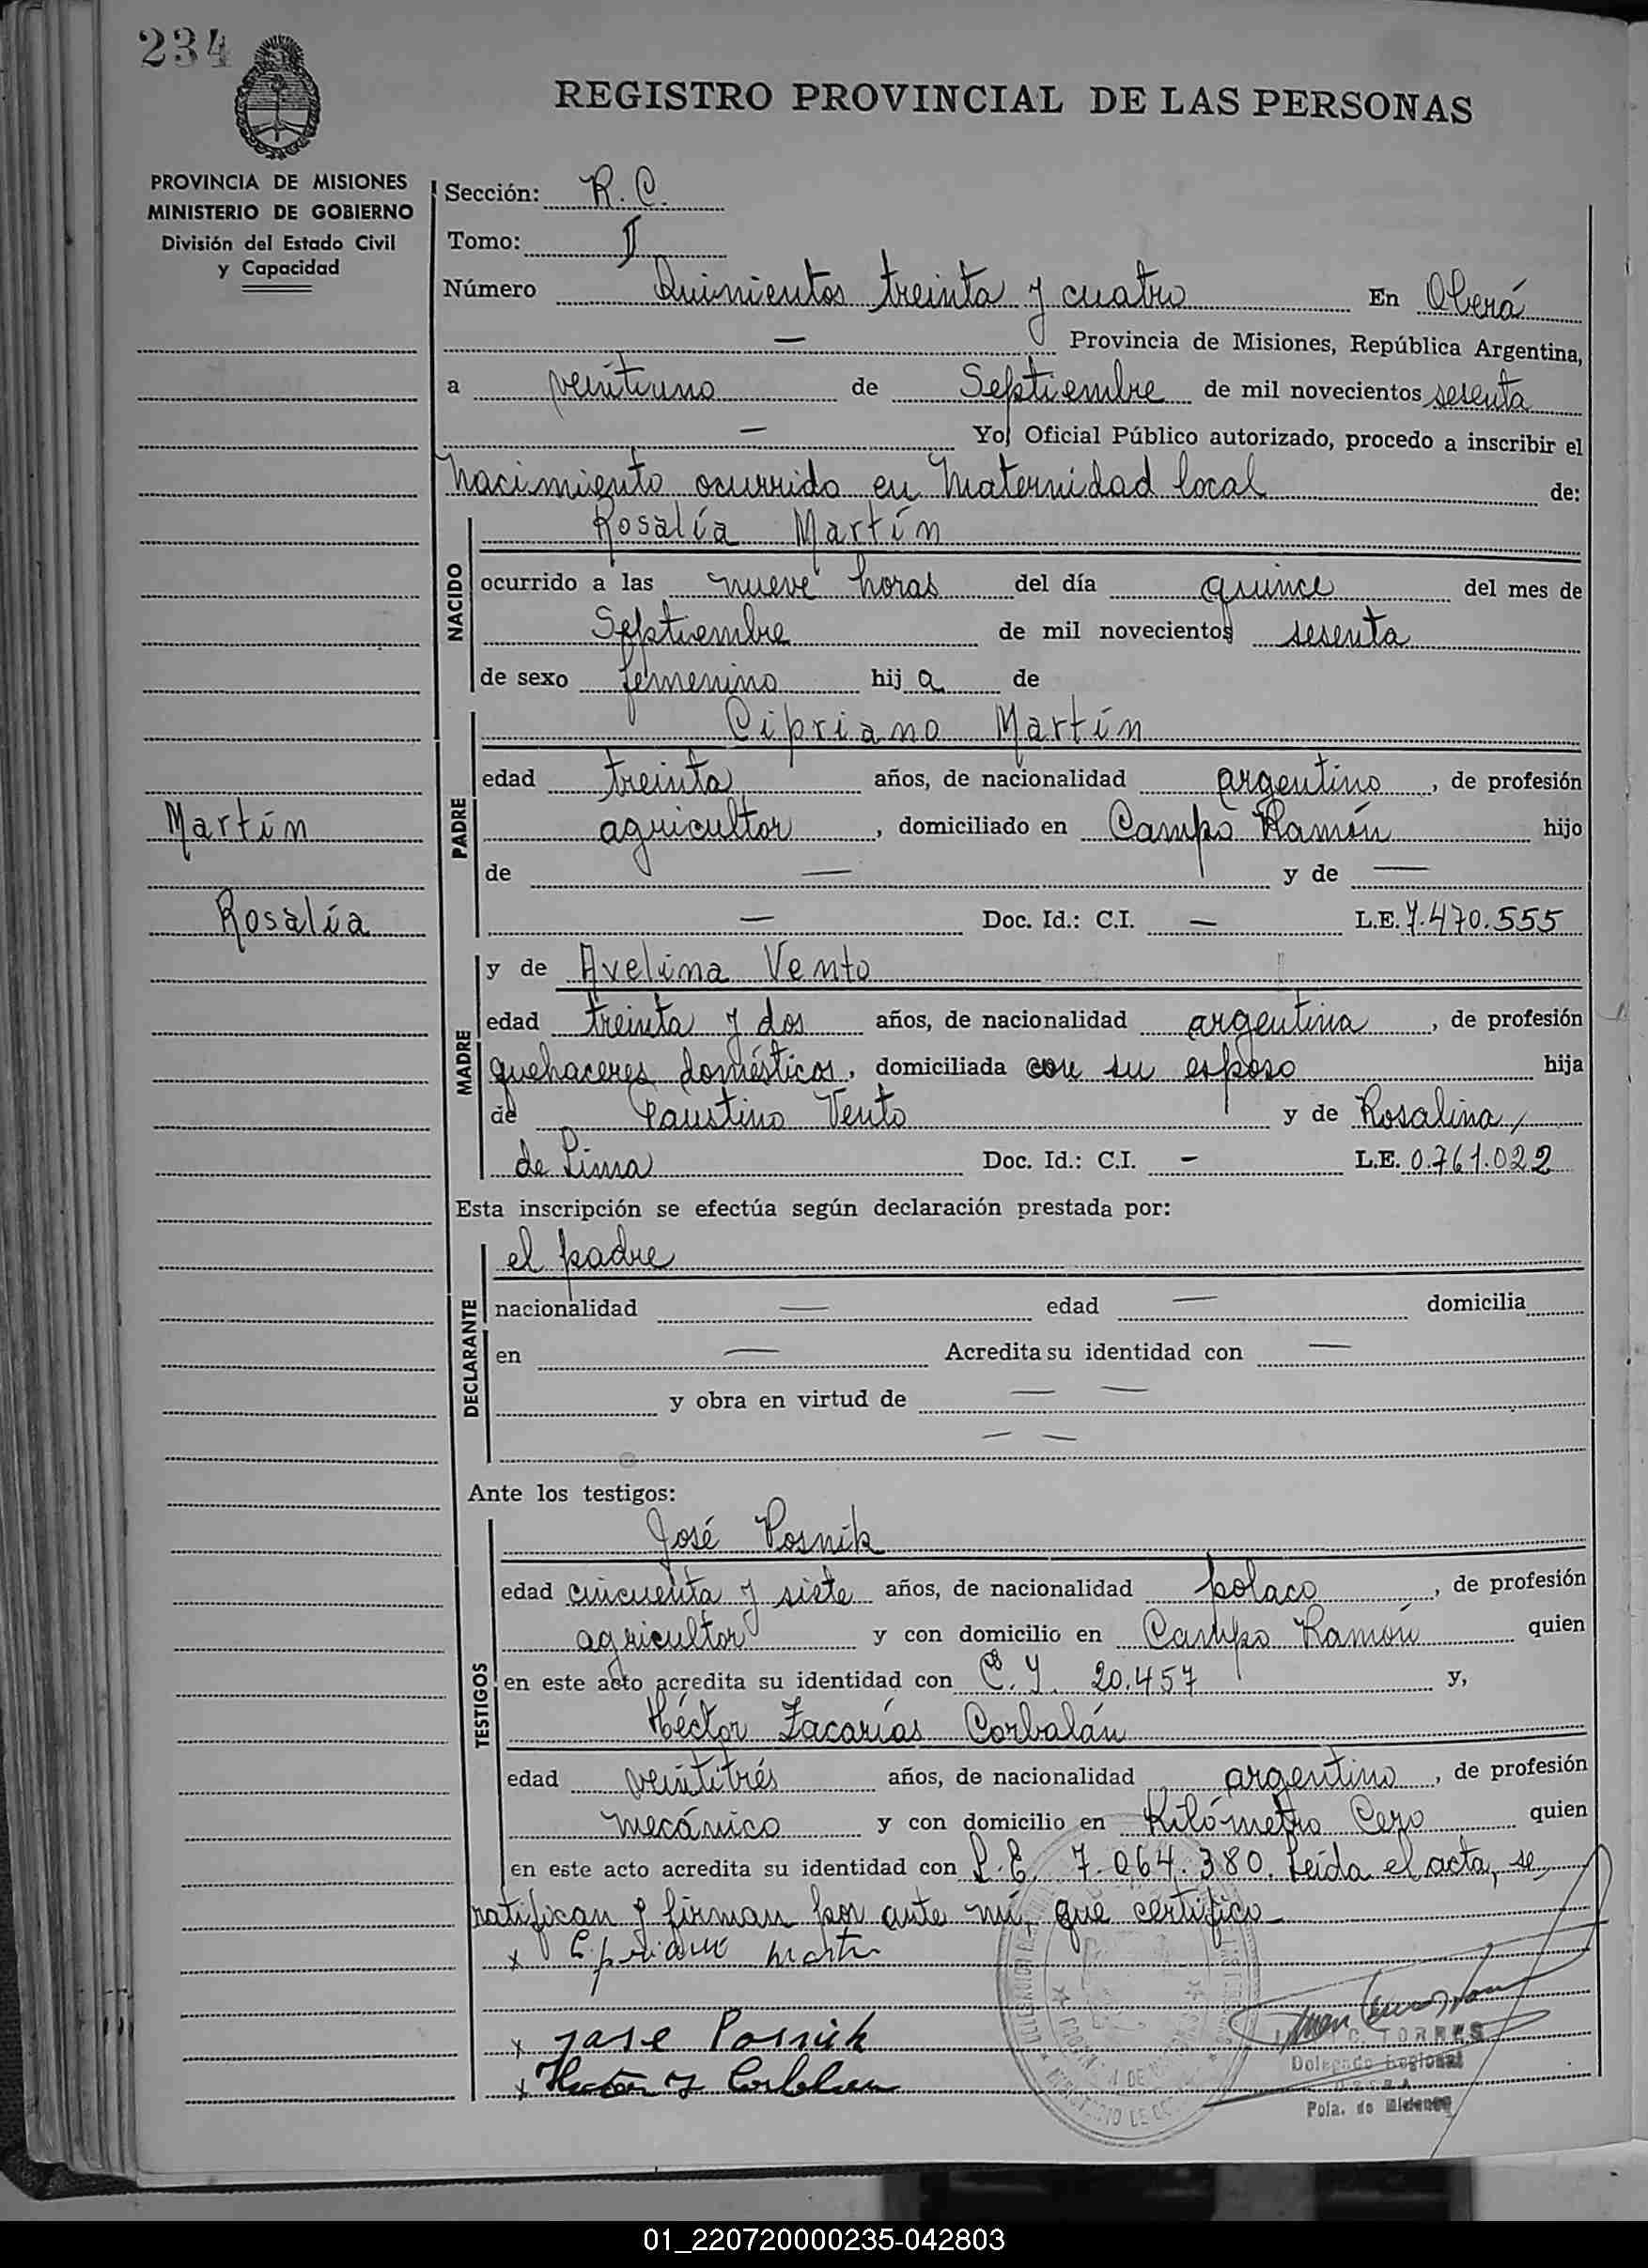 234
REGISTRO PROVINCIAL DE LAS PERSONAS
PROVINCIA DE MISIONES
MINISTERIO DE GOBIERNO
División del Estado Civil
y Capacidad
Sección: R. C.
Tomo: II
Número Quinientos treinta y cuatro En Oberá
— Provincia de Misiones, República Argentina,
a veintiuno de Septiembre de mil novecientos sesenta
— Yo, Oficial Público autorizado, procedo a inscribir el
nacimiento ocurrido en Maternidad local de:
NACIDO
Rosalía Martín
ocurrido a las nueve horas del día quince del mes de
Septiembre de mil novecientos sesenta
de sexo femenino hij a de
PADRE
Cipriano Martín
edad treinta años, de nacionalidad argentino, de profesión
agricultor, domiciliado en Campo Ramón hijo
de — y de —
— Doc. Id.: C.I. — L.E. 7.470.555
Martín
Rosalía
MADRE
y de Avelina Vento
edad treinta y dos años, de nacionalidad argentina, de profesión
quehaceres domésticos, domiciliada con su esposo hija
de Faustino Vento y de Rosalina
de Lima Doc. Id.: C.I. — L.E. 0.761.022
Esta inscripción se efectúa según declaración prestada por:
DECLARANTE
el padre
nacionalidad — edad — domicilia
en — Acredita su identidad con —
y obra en virtud de — —
— —
Ante los testigos:
TESTIGOS
José Posnik
edad cincuenta y siete años, de nacionalidad polaco, de profesión
agricultor y con domicilio en Campo Ramón quien
en este acto acredita su identidad con C. I. 20.457 y,
Héctor Zacarías Corbalán
edad veintitrés años, de nacionalidad argentino, de profesión
mecánico y con domicilio en Kilómetro Cero quien
en este acto acredita su identidad con L. E. 7.064.380. Leída el acta, se
ratifican y firman por ante mí, que certifico
x Cipriano Martin
x Jose Posnik
x Hector Z Corbalan
C. TORRES
Delegado Regional
OBERA
Pcia. de Misiones
01_220720000235-042803